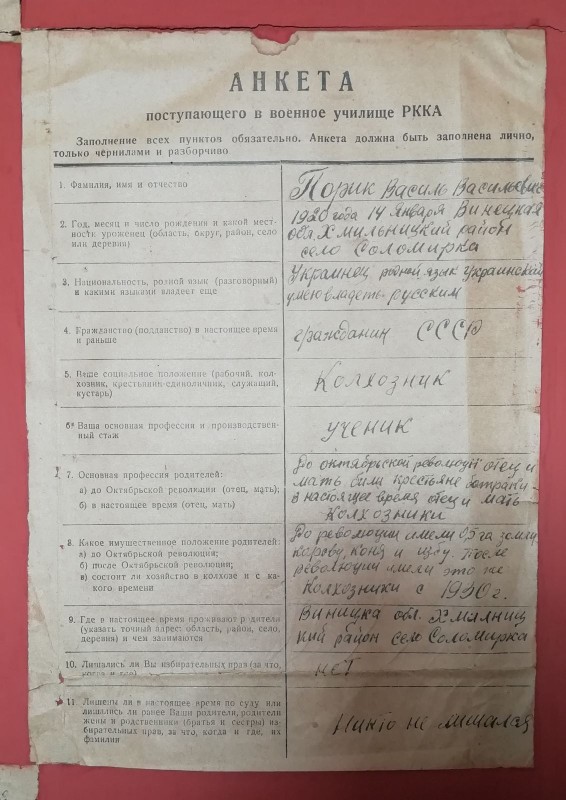 АНКЕТА
поступающего в военное училище РККА
Заполнение всех пунктов обязательно. Анкета должна быть заполнена лично,
только чернилами и разборчиво
1. Фамилия, имя и отчество
Порик Василь Васильевич
2. Год, месяц и число рождения и какой мест-
ности уроженец (область, округ, район, село
или деревня)
1920 года 14 Января Винецкая
обл. Хмильницкий район
село Соломирка
3. Национальность, родной язык (разговорный)
и какими языками владеет еще
Украинец родной язык Украинский
умею владеть русским
4. Гражданство (подданство) в настоящее время
и раньше
гражданин СССР
5. Ваше социальное положение (рабочий, кол-
хозник, крестьянин-единоличник, служащий,
кустарь)
Колхозник
6. Ваша основная профессия и производствен-
ный стаж
ученик
7. Основная профессия родителей:
а) до Октябрьской революции (отец, мать);
б) в настоящее время (отец, мать)
До октябрьской револющи отец и
мать были крестьяне
в настоящее время отец и мать
Колхозники
8. Какое имущественное положение родителей:
а) до Октябрьской революции;
б) после Октябрьской революции;
в) состоит ли хозяйство в колхозе и с ка-
кого времени
До революции имели 0,5 га земли
корову, коня и избу. После
революции имели это же
Колхозники с 1930 г.
9. Где в настоящее время проживают родители
(указать точный адрес: область, район, село,
деревня) и чем занимаются
Виницка обл. Хмилниц
кий район село Соломирка
10. Лишались ли Вы избирательных прав (за что,
когда и где)
нет
11. Лишены ли в настоящее время по суду или
лишались ли ранее Ваши родители, родители
жены и родственники (братья и сестры) из-
бирательных прав, за что, когда и где, их
фамилии
Никто не лишался